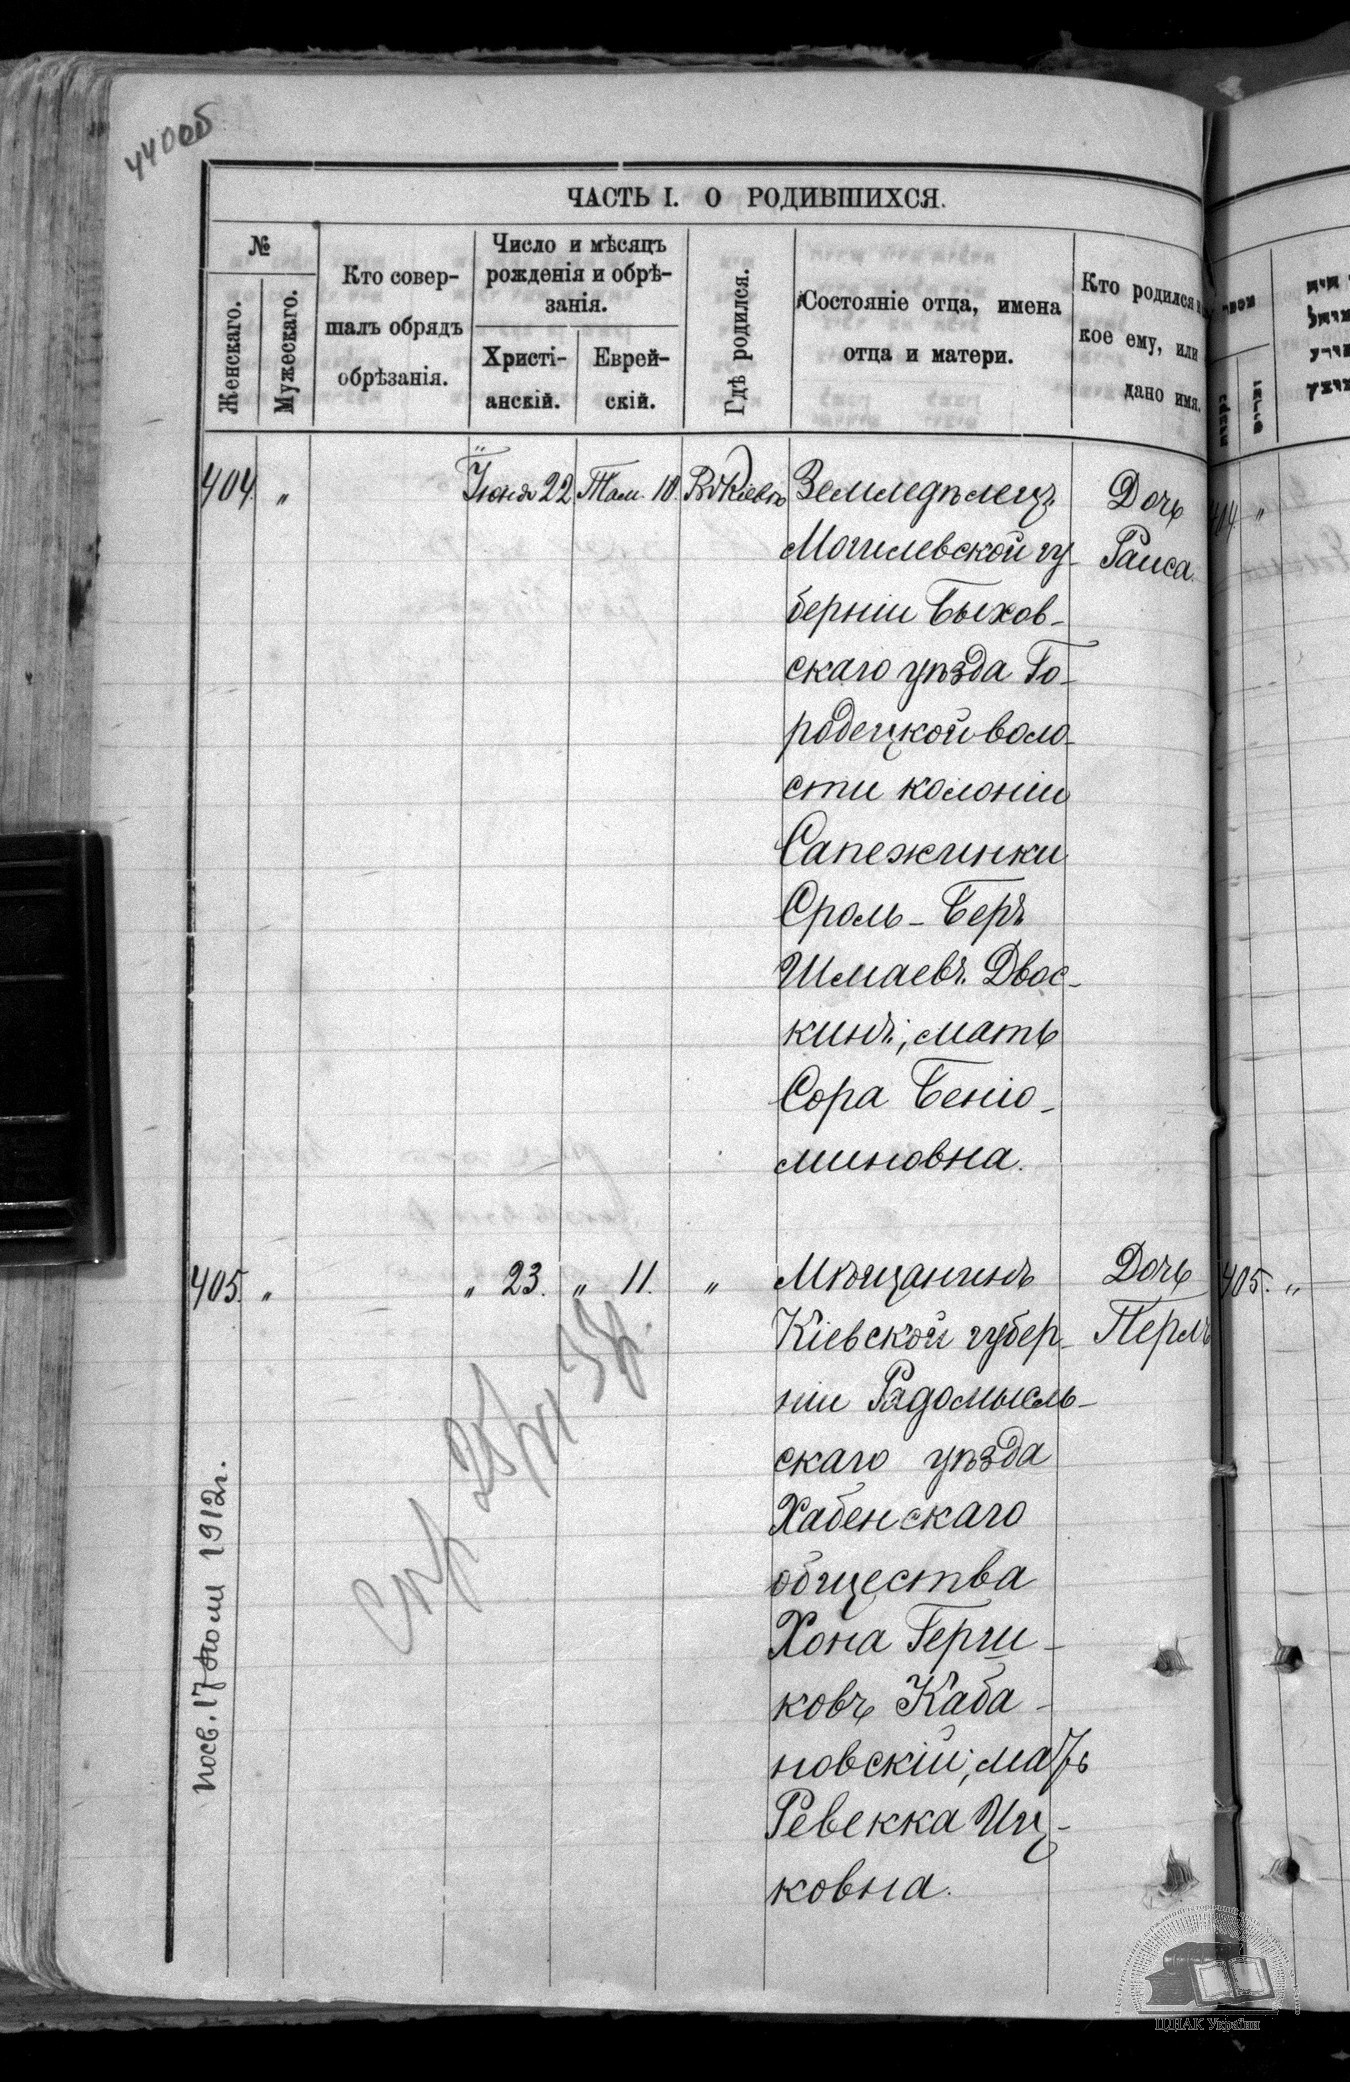 440об
ЧАСТЬ I. О РОДИВШИХСЯ.
№
Женскаго.
Мужескаго.
Кто совер-
шалъ обрядъ
обрѣзанія.
Число и мѣсяцъ
рожденія и обрѣ-
занія.
Христі-
анскій.
Еврей-
скій.
Гдѣ родился.
Состояніе отца, имена
отца и матери.
Кто родился и
кое ему, или
дано имя.
404. „ Іюня 22 Там. 10. Въ Кіевѣ
Земледѣлецъ
Могилевской гу-
берніи Быхов-
скаго уѣзда Го-
родецкой воло-
сти колоніи
Сапежинки
Сроль-Беръ
Шмаевъ Двос-
кинъ; мать
Сора Беніо-
миновна.
Дочь
Раиса.
404 „
405. „ „ 23. „ 11. „
Мѣщанинъ
Кіевской губер-
ніи Радомысль-
скаго уѣзда
Хабенскаго
общества
Хона Герш-
ковъ Каба-
новскій; мать
Ревекка Иц-
ковна.
Дочь
Перль
405. „
1912г.
ЦДІАК України